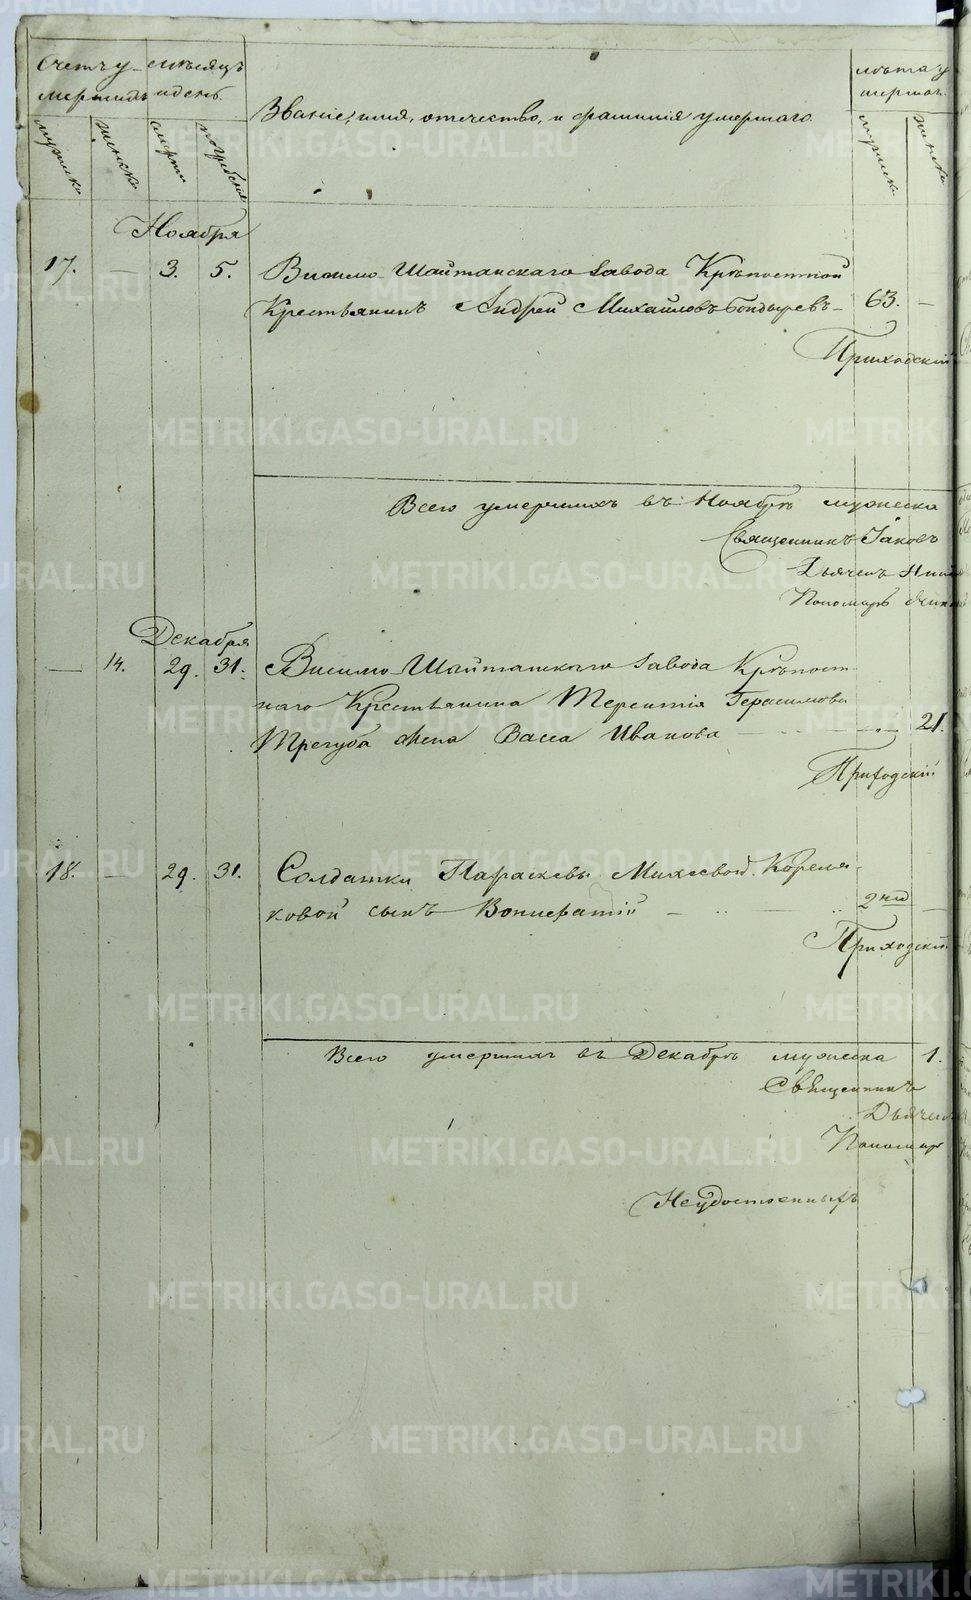 Счетъ у- мѣсяцъ
мершихъ и день.
Званіе, имя, отчество, и фамилія умершаго.
лѣта у
мершаго
мужеска
женска
смерти
погребенія
мужеска
женска
Ноября
17. — 3. 5. Висимо-Шайтанскаго Завода Крѣпостной
Крестьянинъ Андрей Михайловъ Бондыревъ — 63. —
Приходскій
Всего умершихъ въ Ноябрѣ мужеска
Священникъ Іаковъ
Дьячекъ
Пономарь
Декабря
— 14. 29. 31. Висимо-Шайтанскаго Завода Крѣпост
наго Крестьянина Терентія Герасимова
Трегуба жена Васса Иванова — 21.
Приходскій
18. — 29. 31. Солдатки Параскевы Михеевой Кореля
ковой сынъ Вонифатій — 2 нед —
Приходскій
Всего умершихъ въ Декабрѣ мужеска 1.
Священникъ
Дьячекъ
Пономарь
Неудостоенныхъ
METRIKI.GASO-URAL.RU